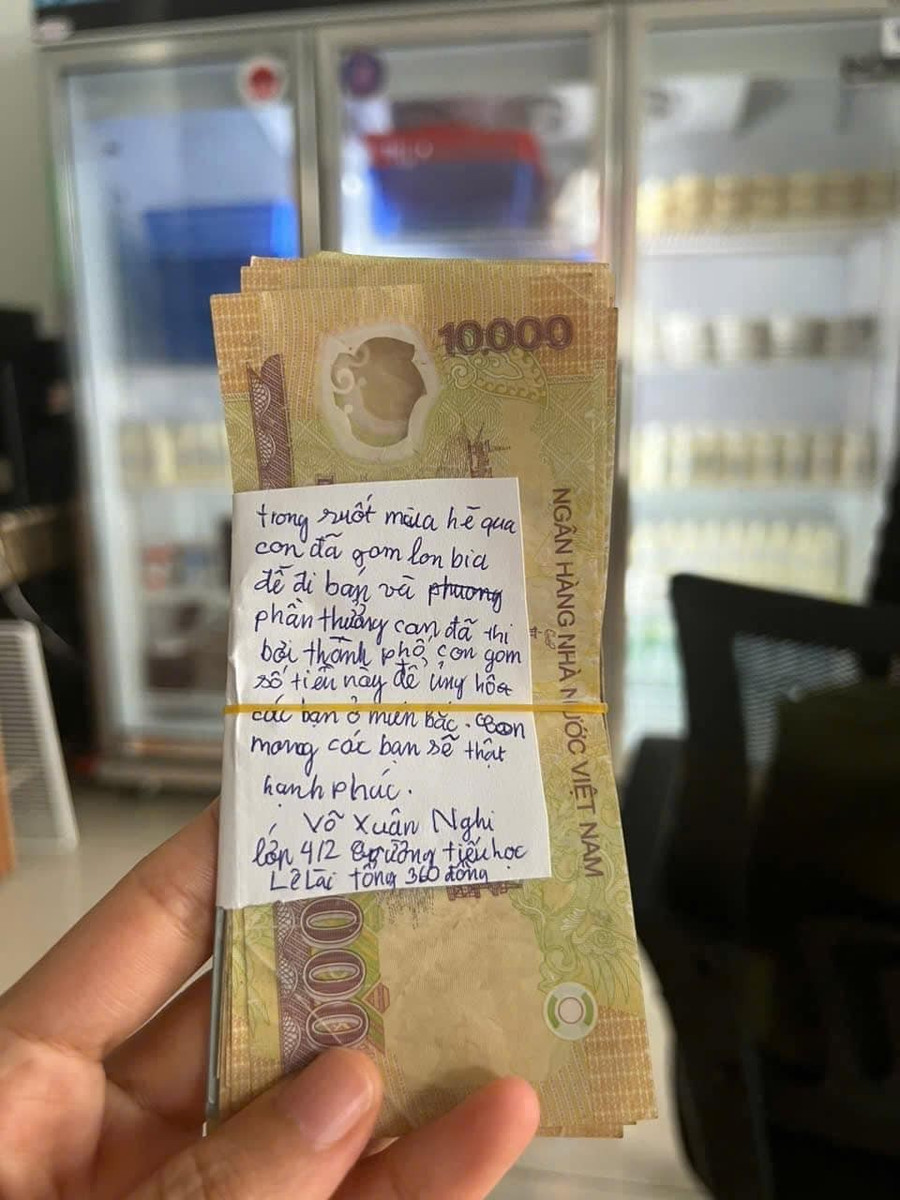 10.000
NGÂN HÀNG NHÀ NƯỚC VIỆT NAM
trong suốt mùa hè qua
con đã gom lon bia
để đi bán và phương
phần thưởng con đã thi
bơi thành phố, con gom
số tiền này để ủng hộ
các bạn ở miền Bắc. Con
mong các bạn sẽ thật
hạnh phúc.
Võ Xuân Nghi
lớp 4/2 trường tiểu học
Lê Lai tổng 360 đồng
000